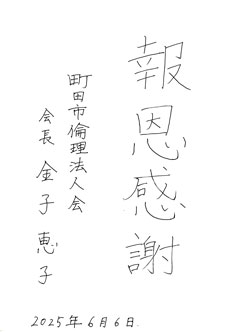 報恩感謝
町田市倫理法人会
会長 金子恵子
2025年6月6日